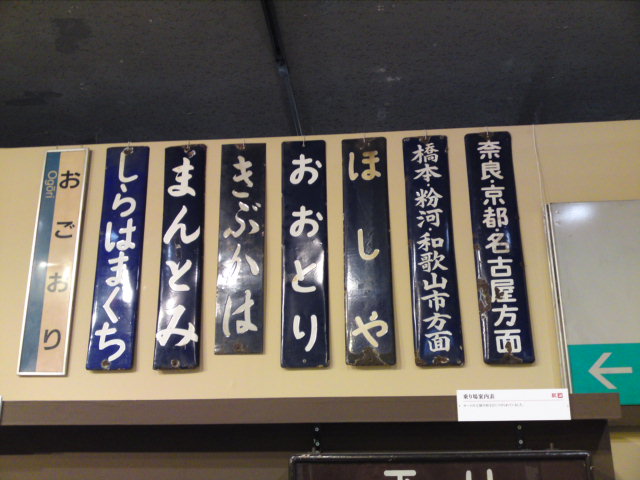 おごおり
Ogōri
しらはまぐち
まんとみ
きぶかは
おおとり
ほしや
橋本・粉河・和歌山市方面
奈良・京都・名古屋方面
乗り場案内表